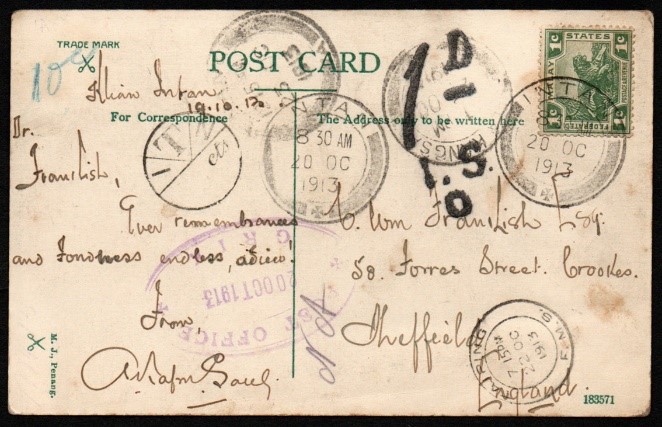 TRADE MARK
POST CARD
10c
Intan
19.10.13
For Correspondence
The Address only to be written here
Dr.
Franklish,
Ever remembrances
and fondness endless, adieu!
From,
T
cts
INTAN
8 30 AM
20 OC
1913
1D
I.S.
O
KINGS
1c STATES 1c
MALAY
FEDERATED
INTAN
20 OC
1913
POST OFFICE
GRIK
20 OCT 1913
O. Wm Franklish Esq.
58. Forres Street. Crookes.
Sheffield
England.
TAIPING
F.M.S.
22 OC
1913
M. J., Penang.
183571